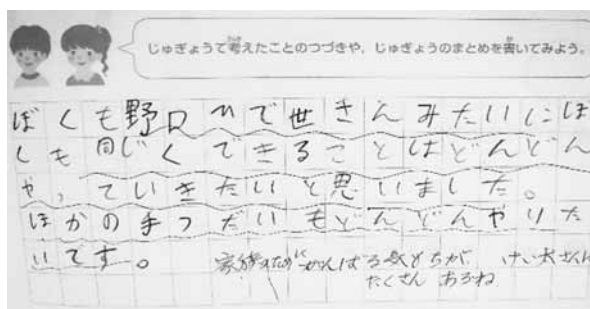 じゅぎょうで考えたことのつづきや、じゅぎょうのまとめを書いてみよう。
ぼくも野口ひで世さんみたいにぼ
くも同じくできることはどんどん
やっていきたいと思いました。
ほかの手つだいもどんどんやりた
いです。
家族のためにがんばる気もちが、けい太さんに
たくさんあるね